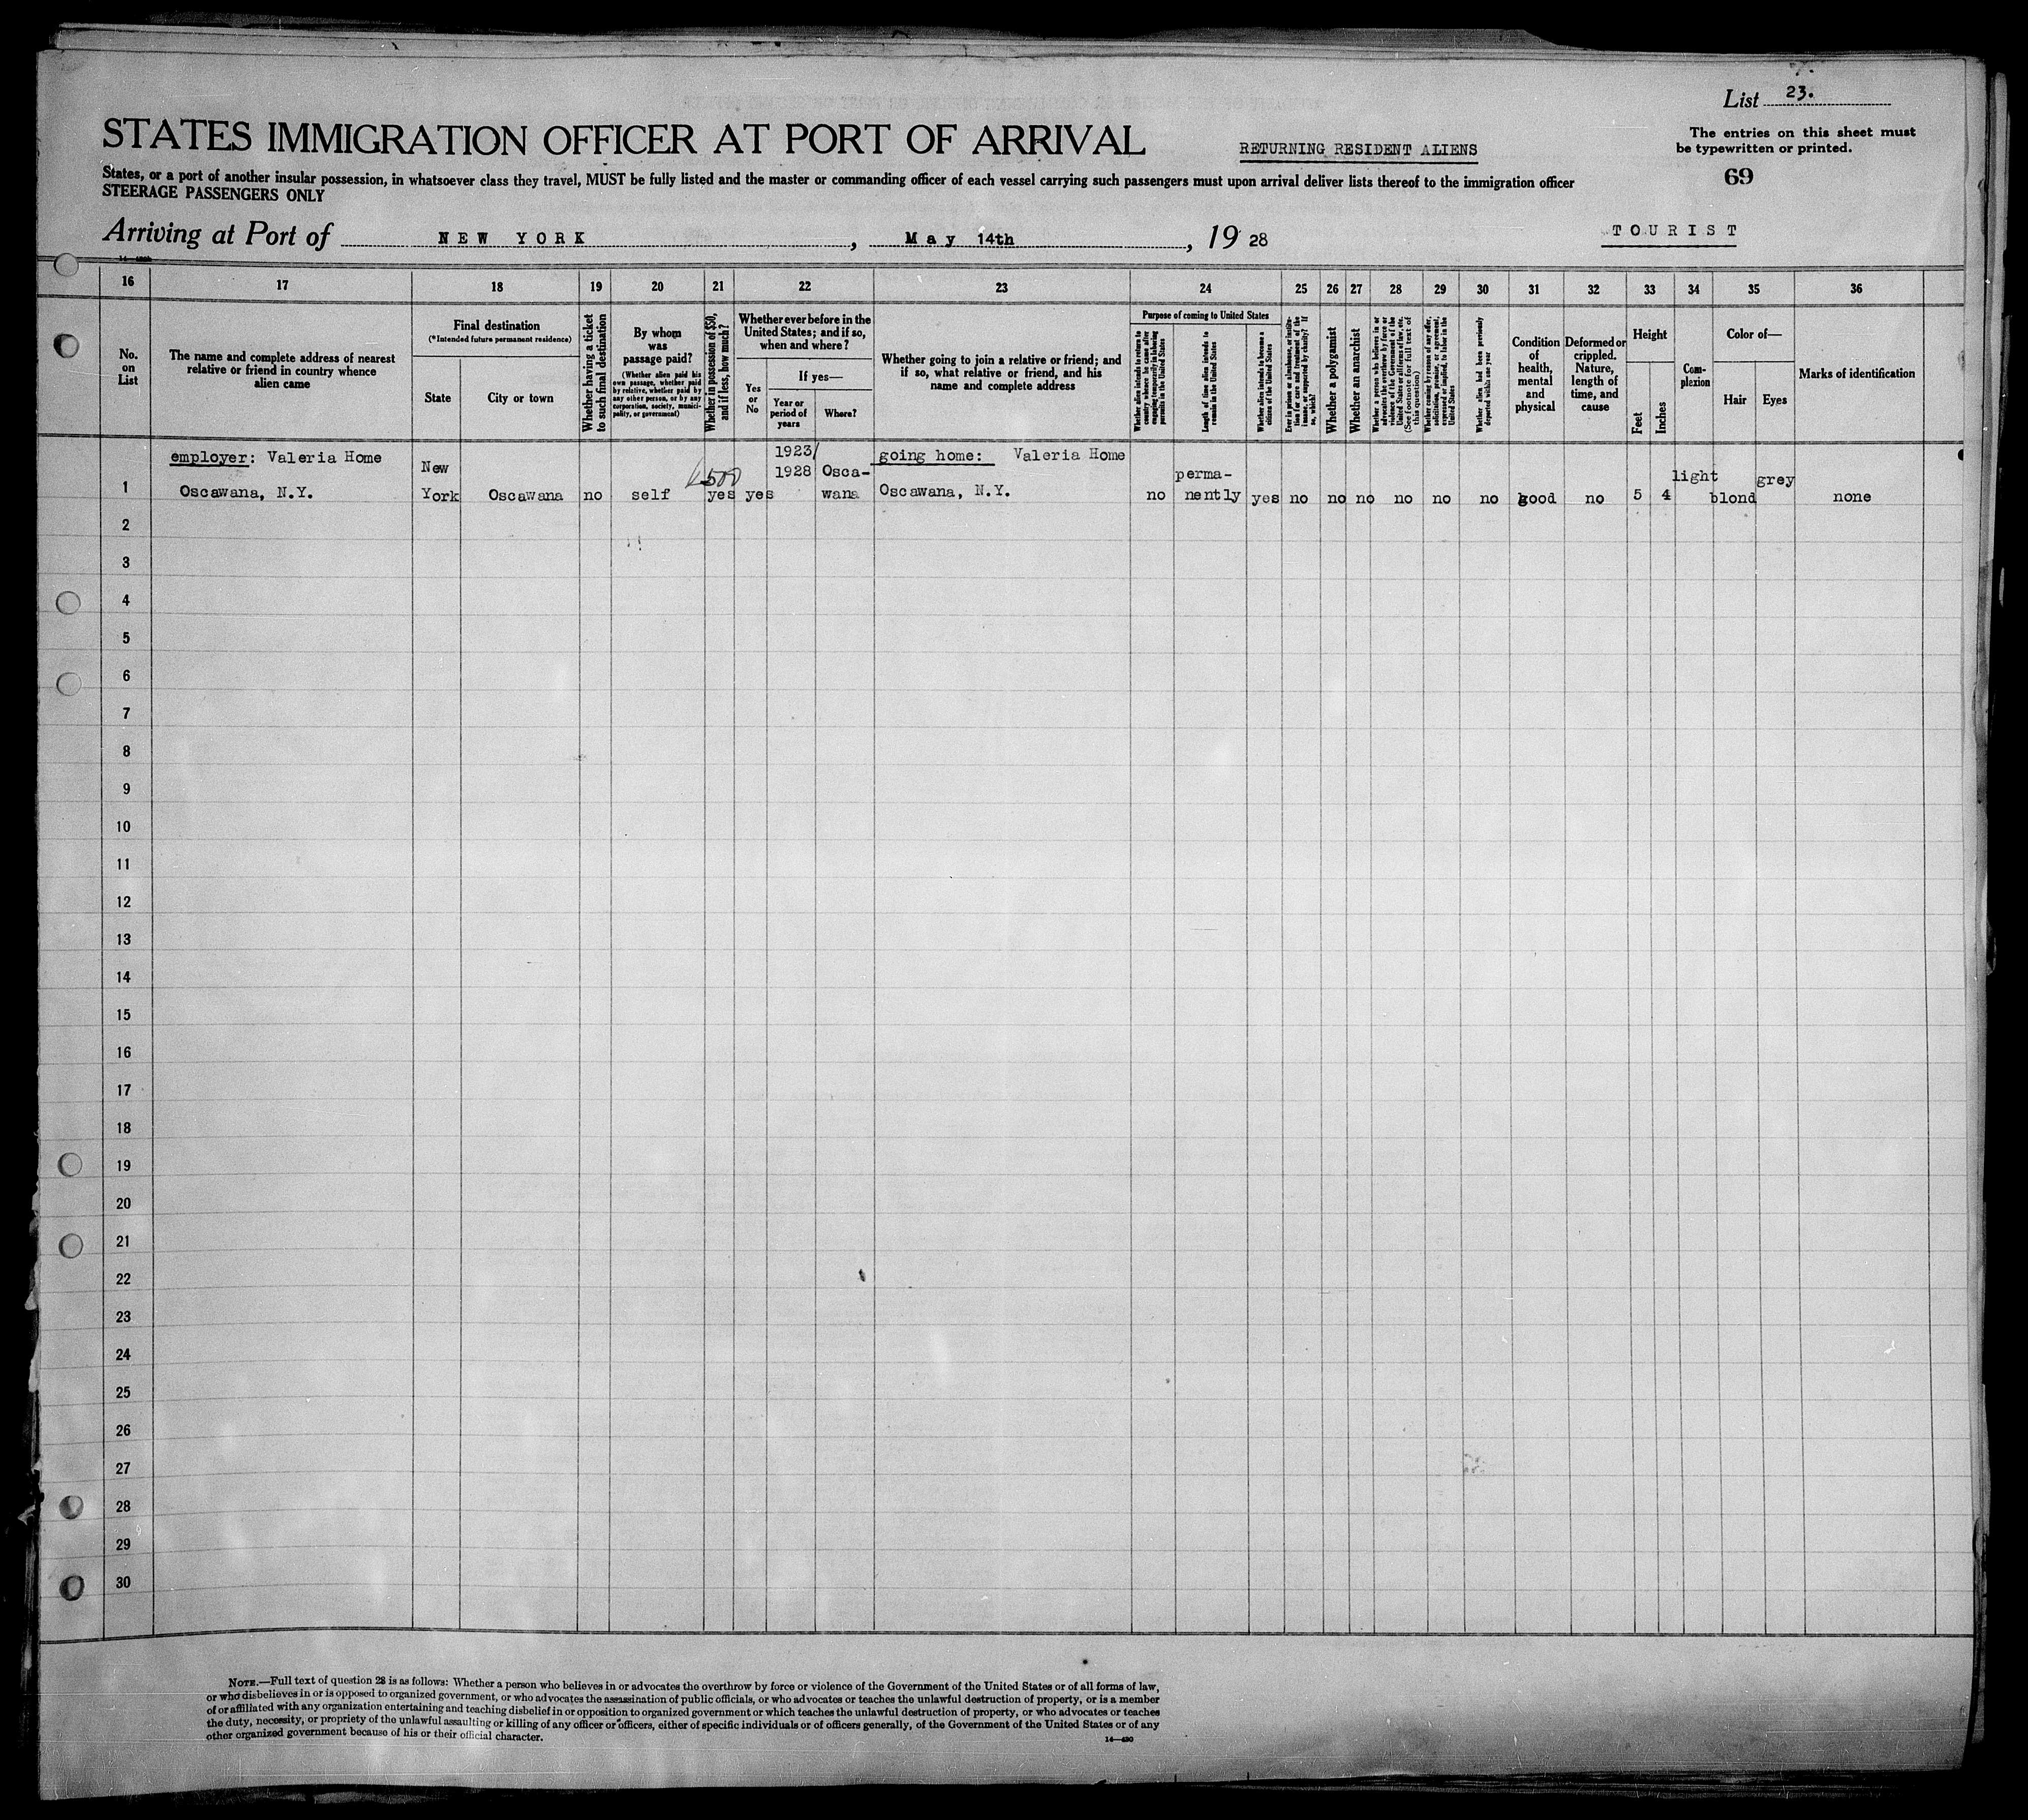 List 23.
STATES IMMIGRATION OFFICER AT PORT OF ARRIVAL
RETURNING RESIDENT ALIENS
The entries on this sheet must
be typewritten or printed.
States, or a port of another insular possession, in whatsoever class they travel, MUST be fully listed and the master or commanding officer of each vessel carrying such passengers must upon arrival deliver lists thereof to the immigration officer
STEERAGE PASSENGERS ONLY
69
Arriving at Port of NEW YORK, May 14th, 19 28
TOURIST
16 17 18 19 20 21 22 23 24 25 26 27 28 29 30 31 32 33 34 35 36
No.
on
List
The name and complete address of nearest
relative or friend in country whence
alien came
Final destination
(*Intended future permanent residence)
State
City or town
Whether having a ticket
to such final destination
By whom
was
passage paid?
(Whether alien paid his
own passage, whether paid
by relative, whether paid by
any other person, or by any
corporation, society, munici-
pality, or government)
Whether in possession of $50,
and if less, how much?
Whether ever before in the
United States; and if so,
when and where?
Yes
or
No
If yes—
Year or
period of
years
Where?
Whether going to join a relative or friend; and
if so, what relative or friend, and his
name and complete address
Purpose of coming to United States
Whether alien intends to return to
country whence he came after
engaging temporarily in laboring
pursuits in the United States
Length of time alien intends to
remain in the United States
Whether alien intends to become a
citizen of the United States
Ever in prison or almshouse, or institu-
tion for care and treatment of the
insane, or supported by charity? If
so, which?
Whether a polygamist
Whether an anarchist
Whether a person who believes in or
advocates the overthrow by force or
violence of the Government of the
United States or all forms of law, etc.
(See footnote for full text of
this question)
Whether coming by reason of any offer,
solicitation, promise, or agreement,
expressed or implied, to labor in the
United States
Whether alien had been previously
deported within one year
Condition
of
health,
mental
and
physical
Deformed or
crippled.
Nature,
length of
time, and
cause
Height
Feet
Inches
Com-
plexion
Color of—
Hair
Eyes
Marks of identification
employer: Valeria Home
New
500
1923/
1928 Osca-
going home: Valeria Home
perma-
light
grey
1 Oscawana, N.Y. York Oscawana no self yes yes wana Oscawana, N.Y. no nently yes no no no no no no good no 5 4 blond none
2
3
4
5
6
7
8
9
10
11
12
13
14
15
16
17
18
19
20
21
22
23
24
25
26
27
28
29
30
NOTE.—Full text of question 28 is as follows: Whether a person who believes in or advocates the overthrow by force or violence of the Government of the United States or of all forms of law,
or who disbelieves in or is opposed to organized government, or who advocates the assassination of public officials, or who advocates or teaches the unlawful destruction of property, or is a member
of or affiliated with any organization entertaining and teaching disbelief in or opposition to organized government or which teaches the unlawful destruction of property, or who advocates or teaches
the duty, necessity, or propriety of the unlawful assaulting or killing of any officer or officers, either of specific individuals or of officers generally, of the Government of the United States or of any
other organized government because of his or their official character.
14—430